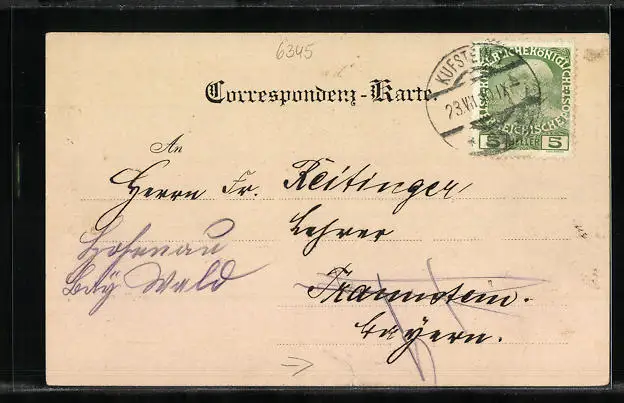 6345
Correspondenz-Karte.
KUFSTEIN
23.VII
IX
5 HELLER 5
An
Herrn Fr. Reitinger
Lehrer
Hohenau
Bay Wald
Traunstein.
Bayern.